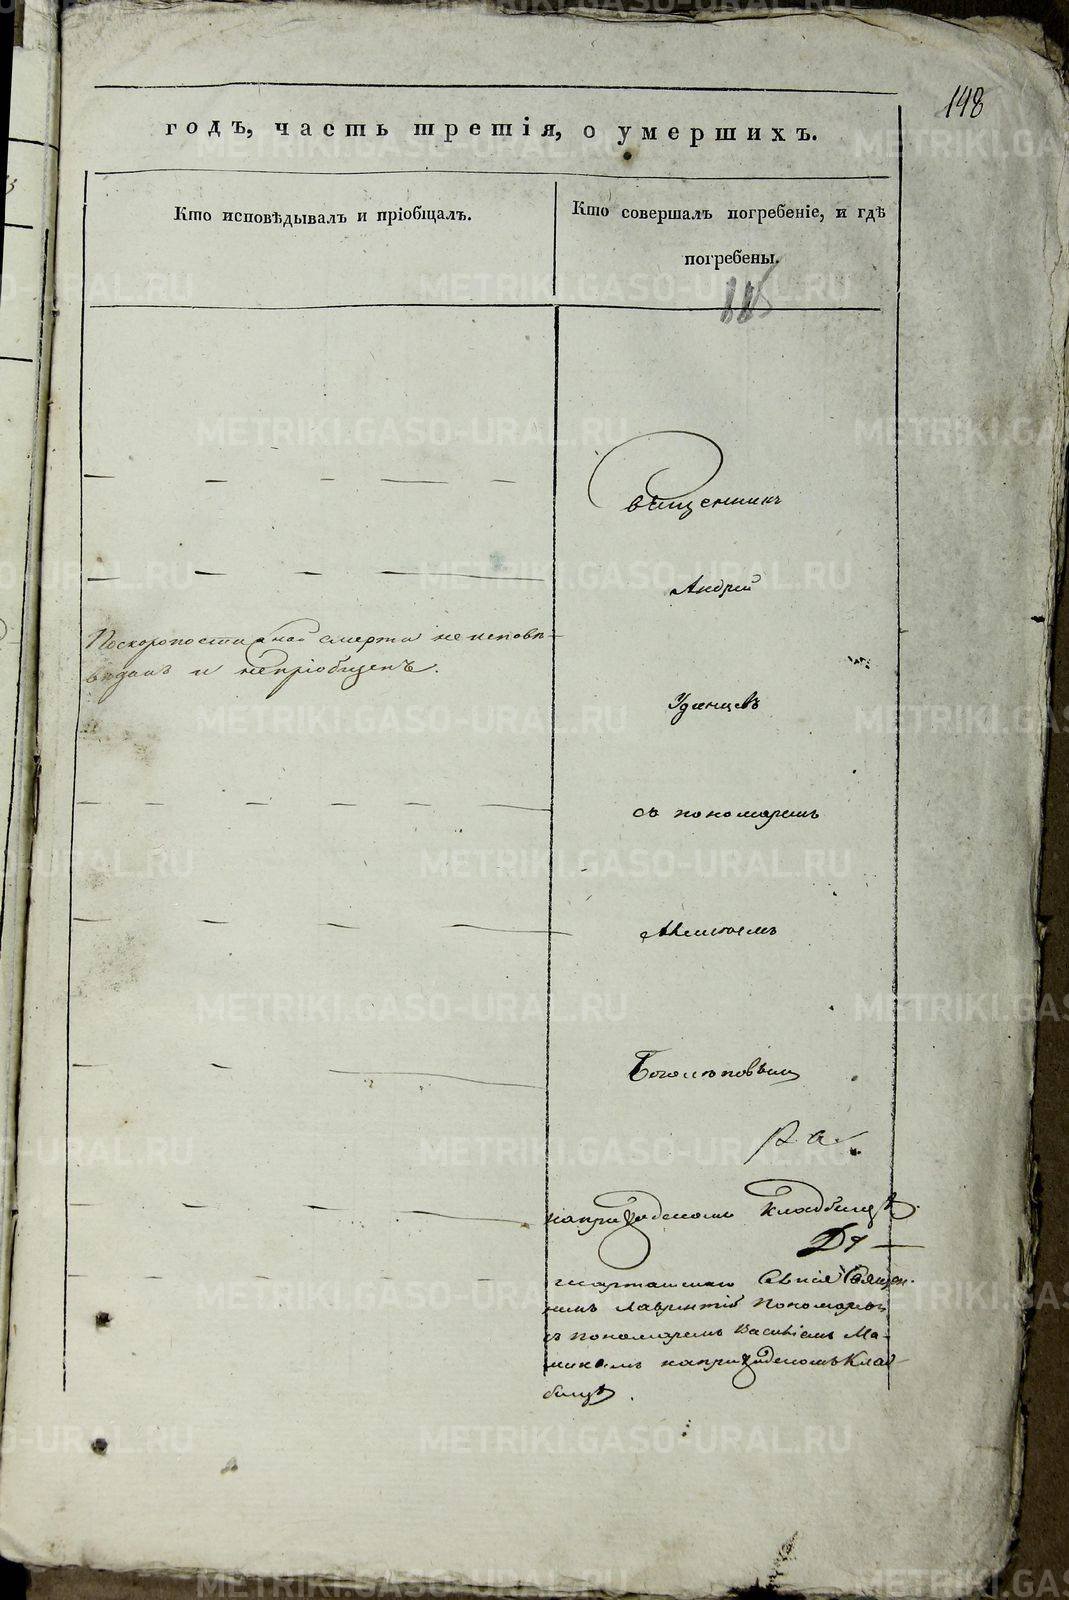 148
годъ, часть третія, о умершихъ.
Кто исповѣдывалъ и пріобщалъ.
Кто совершалъ погребеніе, и гдѣ
погребены.
Священникъ
Андрей
Поскоропостижной смерти неисповѣ-
данъ и непріобщенъ.
Удинцевъ
съ пономаремъ
Боголѣповымъ
наприходскомъ кладбищѣ.
Священ-
никъ Лаврентій Пономаревъ
съ пономаремъ Василіемъ Ма-
наприходскомъКлад-
бищѣ.
METRIKI.GASO-URAL.RU